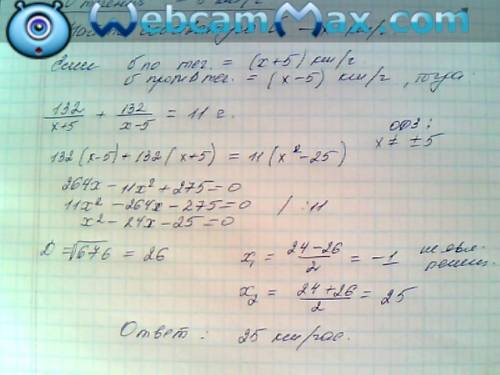 WebcamMax.com
Если б по теч. = (x+5) км/г
б против теч. = (x-5) км/г, тогда
132/x+5 + 132/x-5 = 11 г.
ОДЗ:
x ≠ ±5
132(x-5)+132(x+5) = 11(x²-25)
264x-11x²+275=0
11x²-264x-275=0 /:11
x²-24x-25=0
D=√676 = 26
x₁ = 24-26/2 = -1 не явл.
x₂ = 24+26/2 = 25
Ответ: 25 км/час.